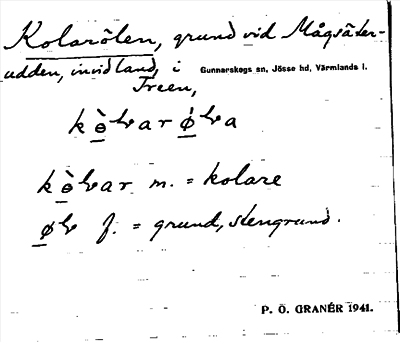 Kolarölen, grund vid Mågsäter-
udden, invid land, i Gunnarskogs sn, Jösse hd, Värmlands l.
Treen,
m. = kolare
f. = grund, stengrund.
P. O. GRANÉR 1941.